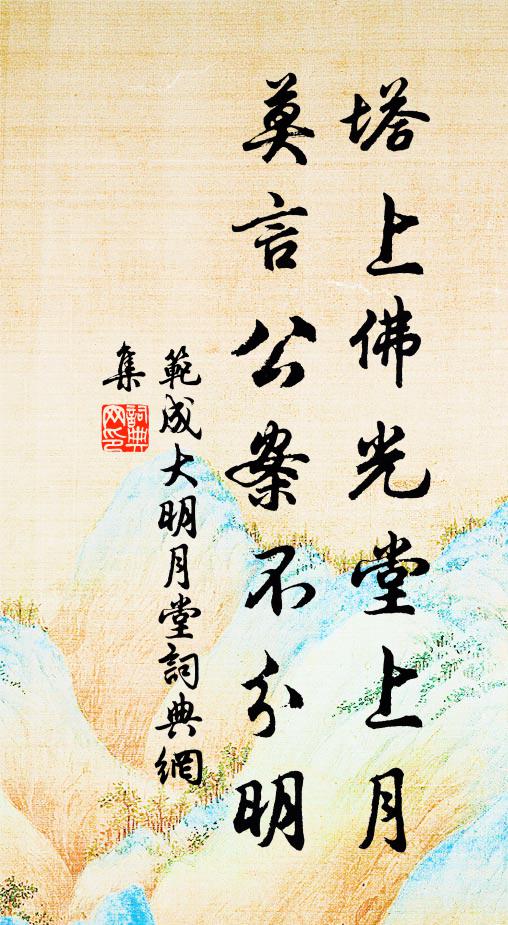 塔上佛光堂上月
莫言公案不分明
範成大明月堂詞典網
集
詞典
网印